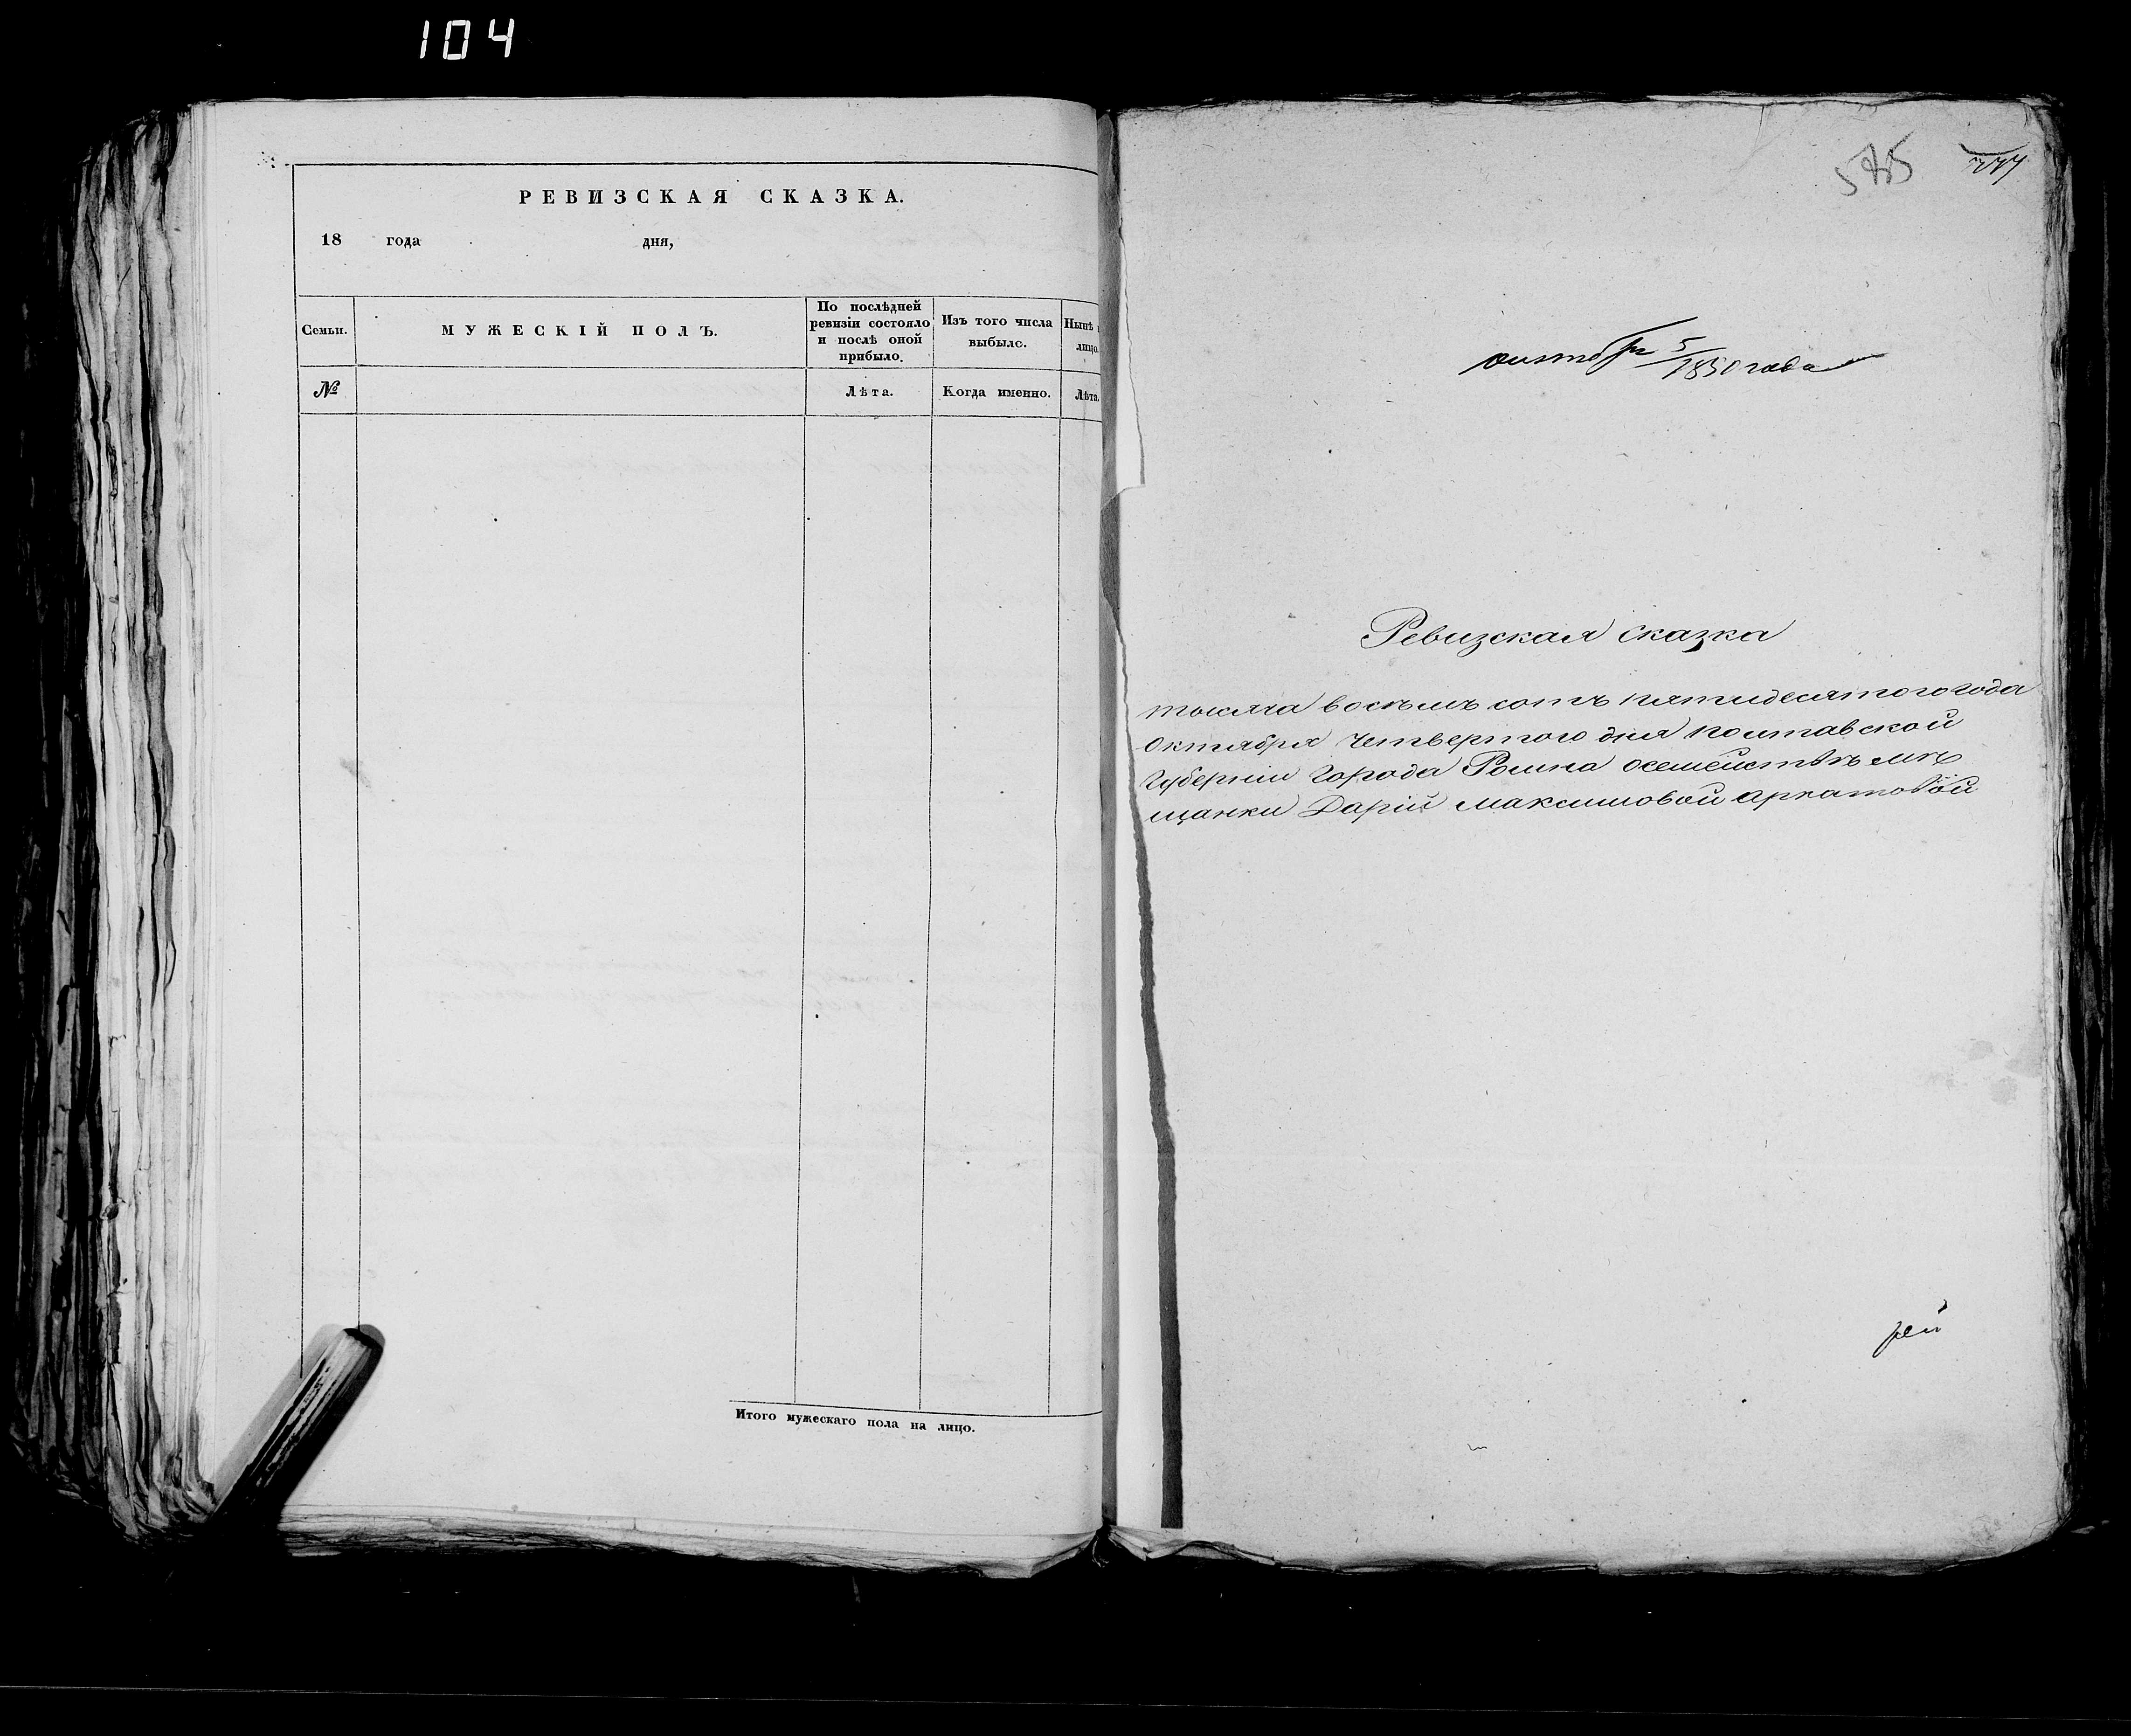 104
РЕВИЗСКАЯ СКАЗКА.
18 года дня,
Семьи.
МУЖЕСКІЙ ПОЛЪ.
По послѣдней
ревизіи состояло
и послѣ оной
прибыло.
Изъ того числа
выбыло.
Нынѣ
лицо.
№
Лѣта.
Когда именно.
Лѣта.
Итого мужескаго пола на лицо.
585
777
октября 5
1850 года
Ревизская сказка
тысяча восѣмъ сотъ пятидесятого года
Октября четвертого дня полтавской
Губерніи Города Ромна осемействѣ мѣ
щанки Даріи максимовой аркатовой
рей